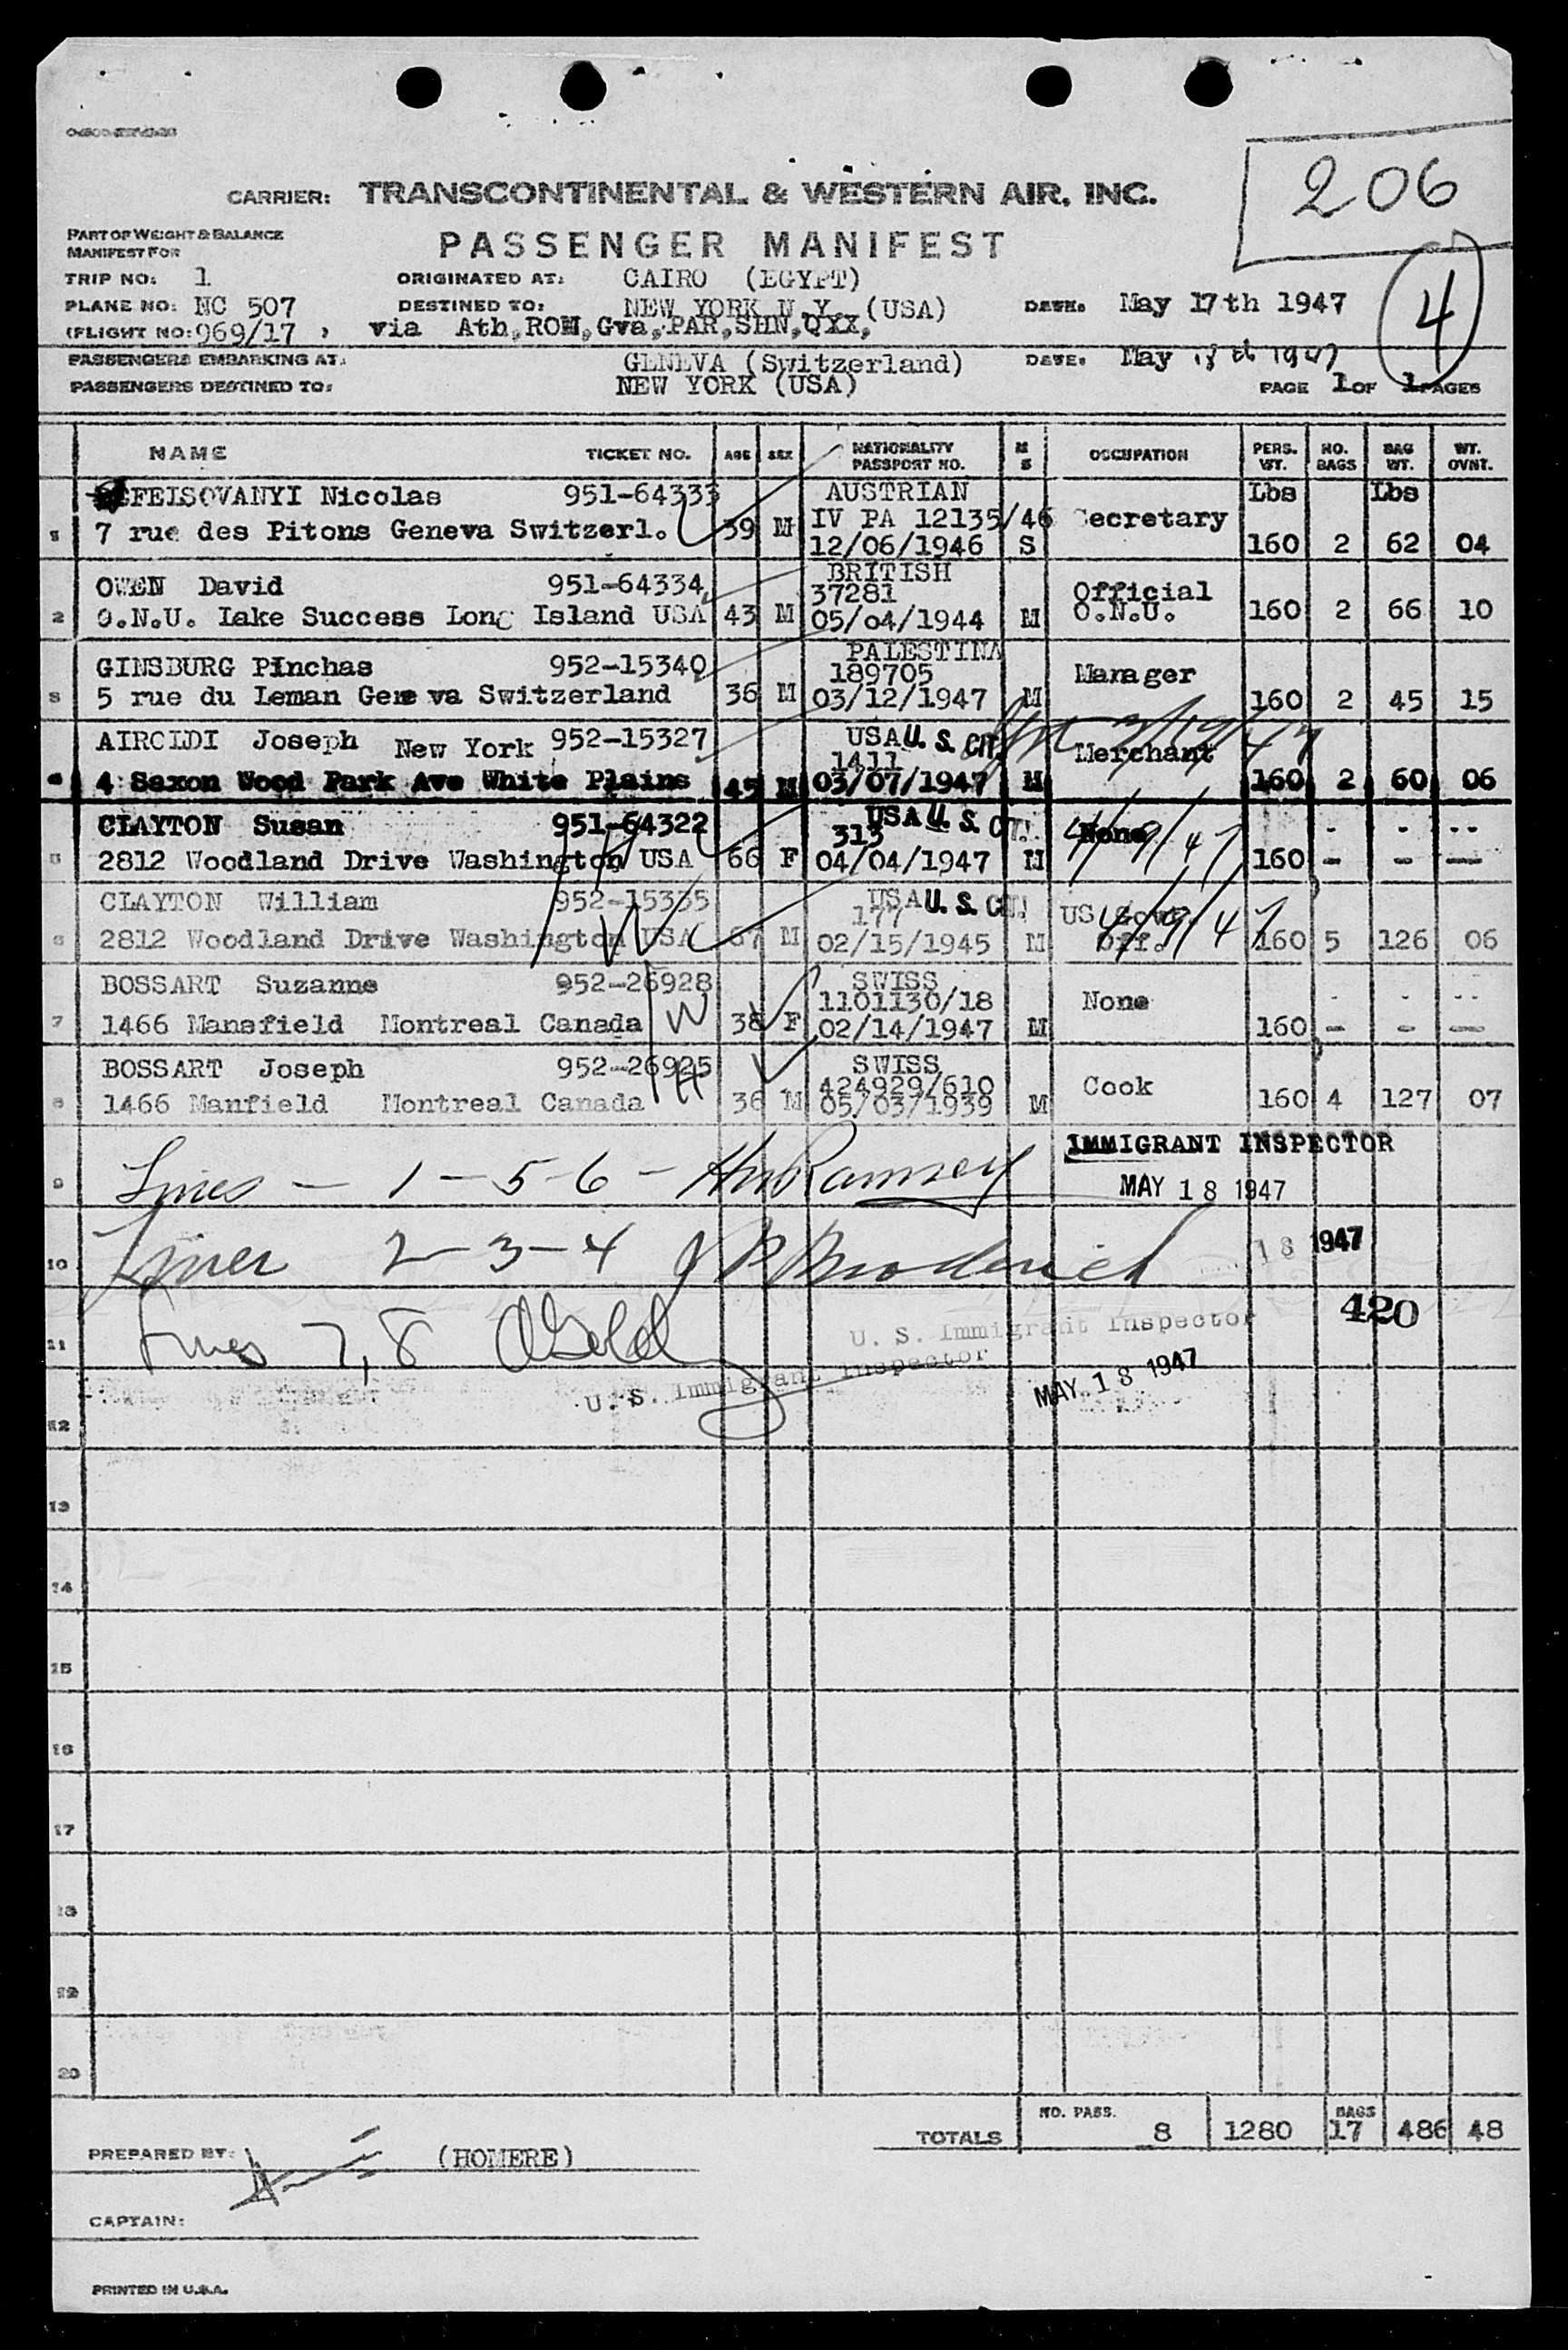 206
CARRIER: TRANSCONTINENTAL & WESTERN AIR, INC.
PART OF WEIGHT & BALANCE
MANIFEST FOR
PASSENGER MANIFEST
TRIP NO: 1 ORIGINATED AT: CAIRO (EGYPT)
PLANE NO: NC 507 DESTINED TO: NEW YORK N.Y. (USA) DATE: May 17th 1947
4
(FLIGHT NO: 969/17 , via Ath,ROM,Gva,PAR,SHN,QXX,
PASSENGERS EMBARKING AT: GENEVA (Switzerland) DATE: May 18th 1947
PASSENGERS DESTINED TO: NEW YORK (USA) PAGE 1 OF 1 PAGES
NAME TICKET NO. AGE SEX NATIONALITY PASSPORT NO. M S OCCUPATION PERS. WT. NO. BAGS BAG WT. WT. OVNT.
FEISOVANYI Nicolas 951-64333 AUSTRIAN Lbs Lbs
1 7 rue des Pitons Geneva Switzerl. 39 M IV PA 12135/46 12/06/1946 S Secretary 160 2 62 04
OWEN David 951-64334 BRITISH
2 O.N.U. Lake Success Long Island USA 43 M 37281 05/04/1944 M Official O.N.U. 160 2 66 10
GINSBURG PInchas 952-15340 PALESTINA
3 5 rue du Leman Gene va Switzerland 36 M 189705 03/12/1947 M Manager 160 2 45 15
AIROLDI Joseph New York 952-15327 USA U. S. CIT.
4 4 Saxon Wood Park Ave White Plains 45 M 1411 03/07/1947 M Merchant 160 2 60 06
CLAYTON Susan 951-64322 USA U. S. CIT.
5 2812 Woodland Drive Washington USA 66 F 313 04/04/1947 M None 160 - - --
CLAYTON William 952-15335 USA U. S. CIT.
6 2812 Woodland Drive Washington USA 67 M 177 02/15/1945 M US Gov. Off. 160 5 126 06
BOSSART Suzanne 952-26928 SWISS
7 1466 Mansfield Montreal Canada 38 F 1101130/18 02/14/1947 M None 160 - - --
BOSSART Joseph 952-26925 SWISS
8 1466 Manfield Montreal Canada 36 M 424929/610 05/03/1939 M Cook 160 4 127 07
IMMIGRANT INSPECTOR
9 Lines - 1-5-6 - Ramsey MAY 18 1947
10 Lines 2-3-4 J P Broderick 18 1947
420
11 Lines 7, 8 U. S. Immigrant Inspector
U. S. Immigrant Inspector MAY 18 1947
12
13
14
15
16
17
18
19
20
TOTALS NO. PASS. 8 1280 BAGS 17 486 48
PREPARED BY: (HOMERE)
CAPTAIN:
PRINTED IN U.S.A.